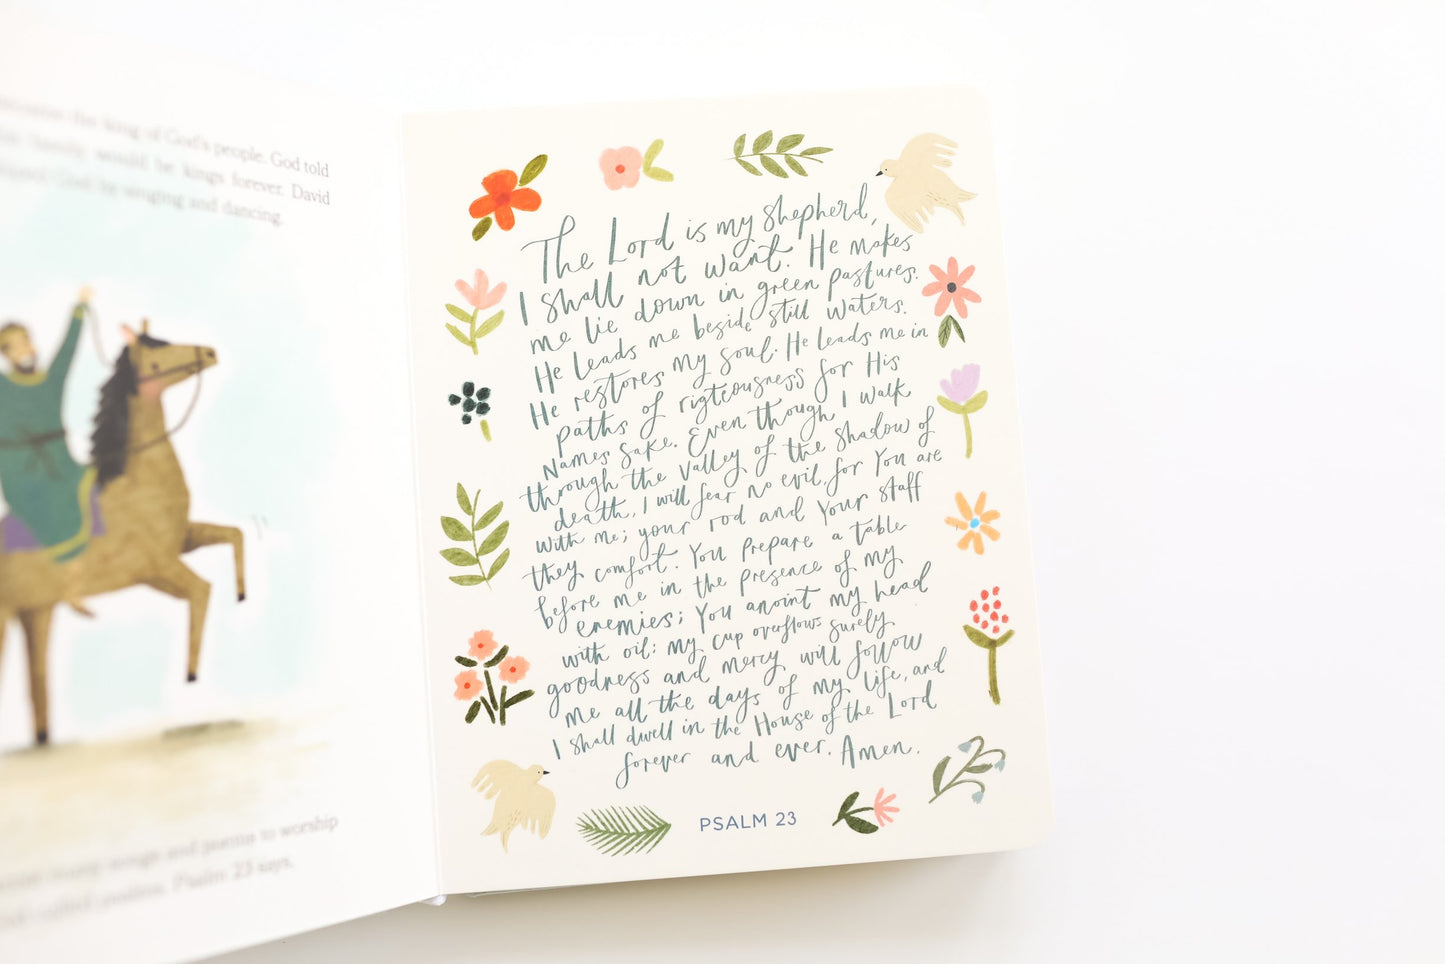 the king of God's people. God told
family would be kings forever. David
God by singing and dancing.
many songs and poems to worship
called psalms. Psalm 23 says,
The Lord is my shepherd,
I shall not want. He makes
me lie down in green pastures.
He leads me beside still waters.
He restores my soul. He leads me in
paths of rigteousness for His
Names Sake. Even though I walk
through the valley of the shadow of
death, I will fear no evil, for You are
with me; your rod and Your staff
they comfort. You prepare a table
before me in the presence of my
enemies; You anoint my head
with oil; my cup overflows surely
goodness and mercy will follow
me all the days of my life, and
I shall dwell in the House of the Lord
forever and ever. Amen.
PSALM 23